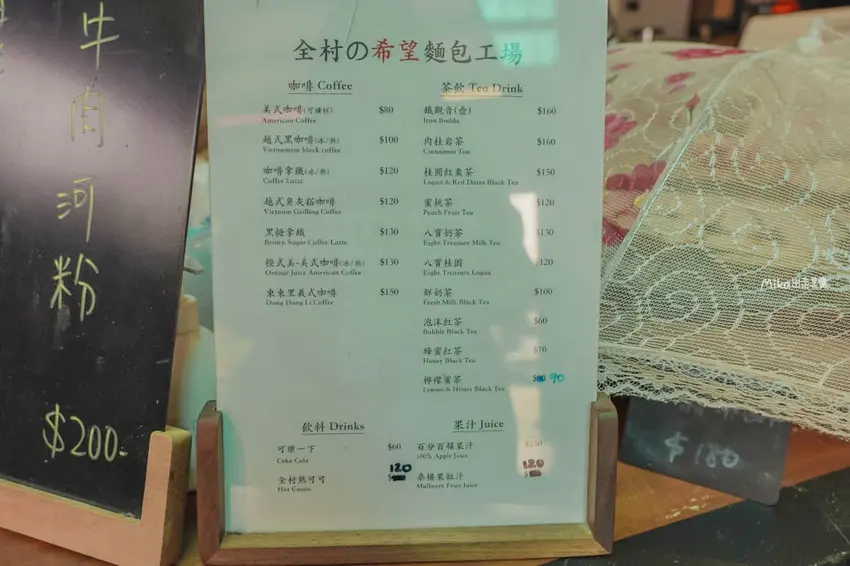 牛肉河粉
$200-
全村の希望麵包工場
咖啡 Coffee
美式咖啡(可續杯) $80
American Coffee
越式黑咖啡(冰/熱) $100
Vietnamese black coffee
咖啡拿鐵(冰/熱) $120
Coffee Latte
越式炭灰搭咖啡 $120
Vietnam Grilling Coffee
黑糖拿鐵 $130
Brown Sugar Coffee Latte
橙式美-美式咖啡(冰/熱) $130
Orange Juice American Coffee
東東里義式咖啡 $150
Dong Dong Li Coffee
茶飲 Tea Drink
鐵觀音(壺) $160
Iron Budda
肉桂岩茶 $160
Cinnamon Tea
桂圓紅棗茶 $150
Logan & Red Dates Black Tea
蜜桃茶 $120
Peach Fruit Tea
八寶奶茶 $130
Eight Treasure Milk Tea
八寶桂圓 $120
Eight Treasure Logan
鮮奶茶 $100
Fresh Milk Black Tea
泡沫紅茶 $60
Bubble Black Tea
蜂蜜紅茶 $70
Honey Black Tea
檸檬蜜茶 90
Lemon & Honey Black Tea
飲料 Drinks
可樂一下 $60
Coke Cola
全村熱可可 120
Hot Cocoa
果汁 Juice
百分百蘋果汁
100% Apple Juice
桑椹果粒汁 120
Mulberry Fruit Juice
$180
Mika出走美食